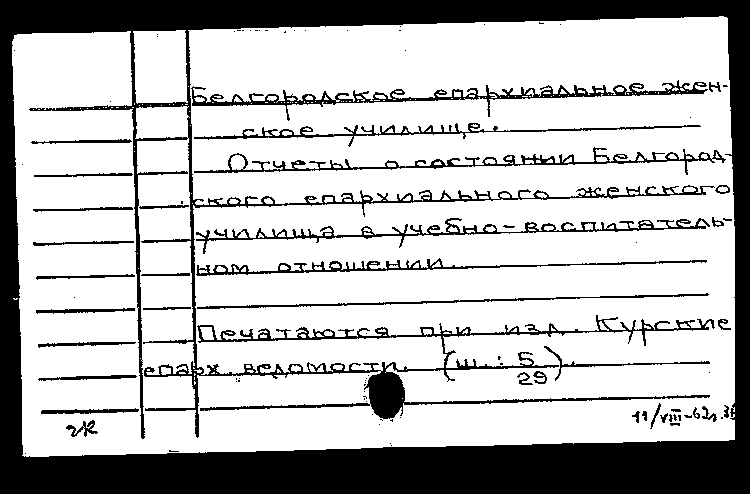 Белгородское епархиальное жен-
ское училище.
Отчеты о состоянии Белгород-
ского епархиального женского
училища в учебно-воспитатель-
ном отношении.
Печатаются при изд. Курские
епарх. ведомости. (ш.: 5
29).
11/VIII-62г.